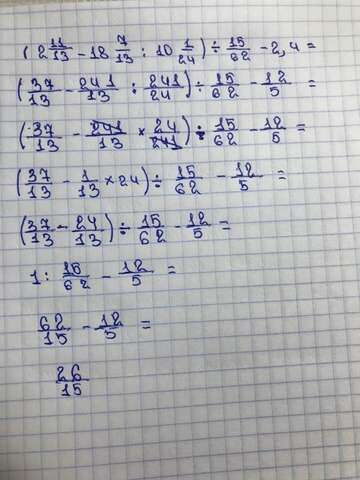 (2 11/13 - 18 7/13 : 10 1/24) ÷ 15/62 - 2,4 =
(37/13 - 241/13 : 241/24) ÷ 15/62 - 12/5 =
(37/13 - 241/13 × 24/241) ÷ 15/62 - 12/5 =
(37/13 - 1/13 × 24) ÷ 15/62 - 12/5 =
(37/13 - 24/13) ÷ 15/62 - 12/5 =
1 : 15/62 - 12/5 =
62/15 - 12/5 =
26/15